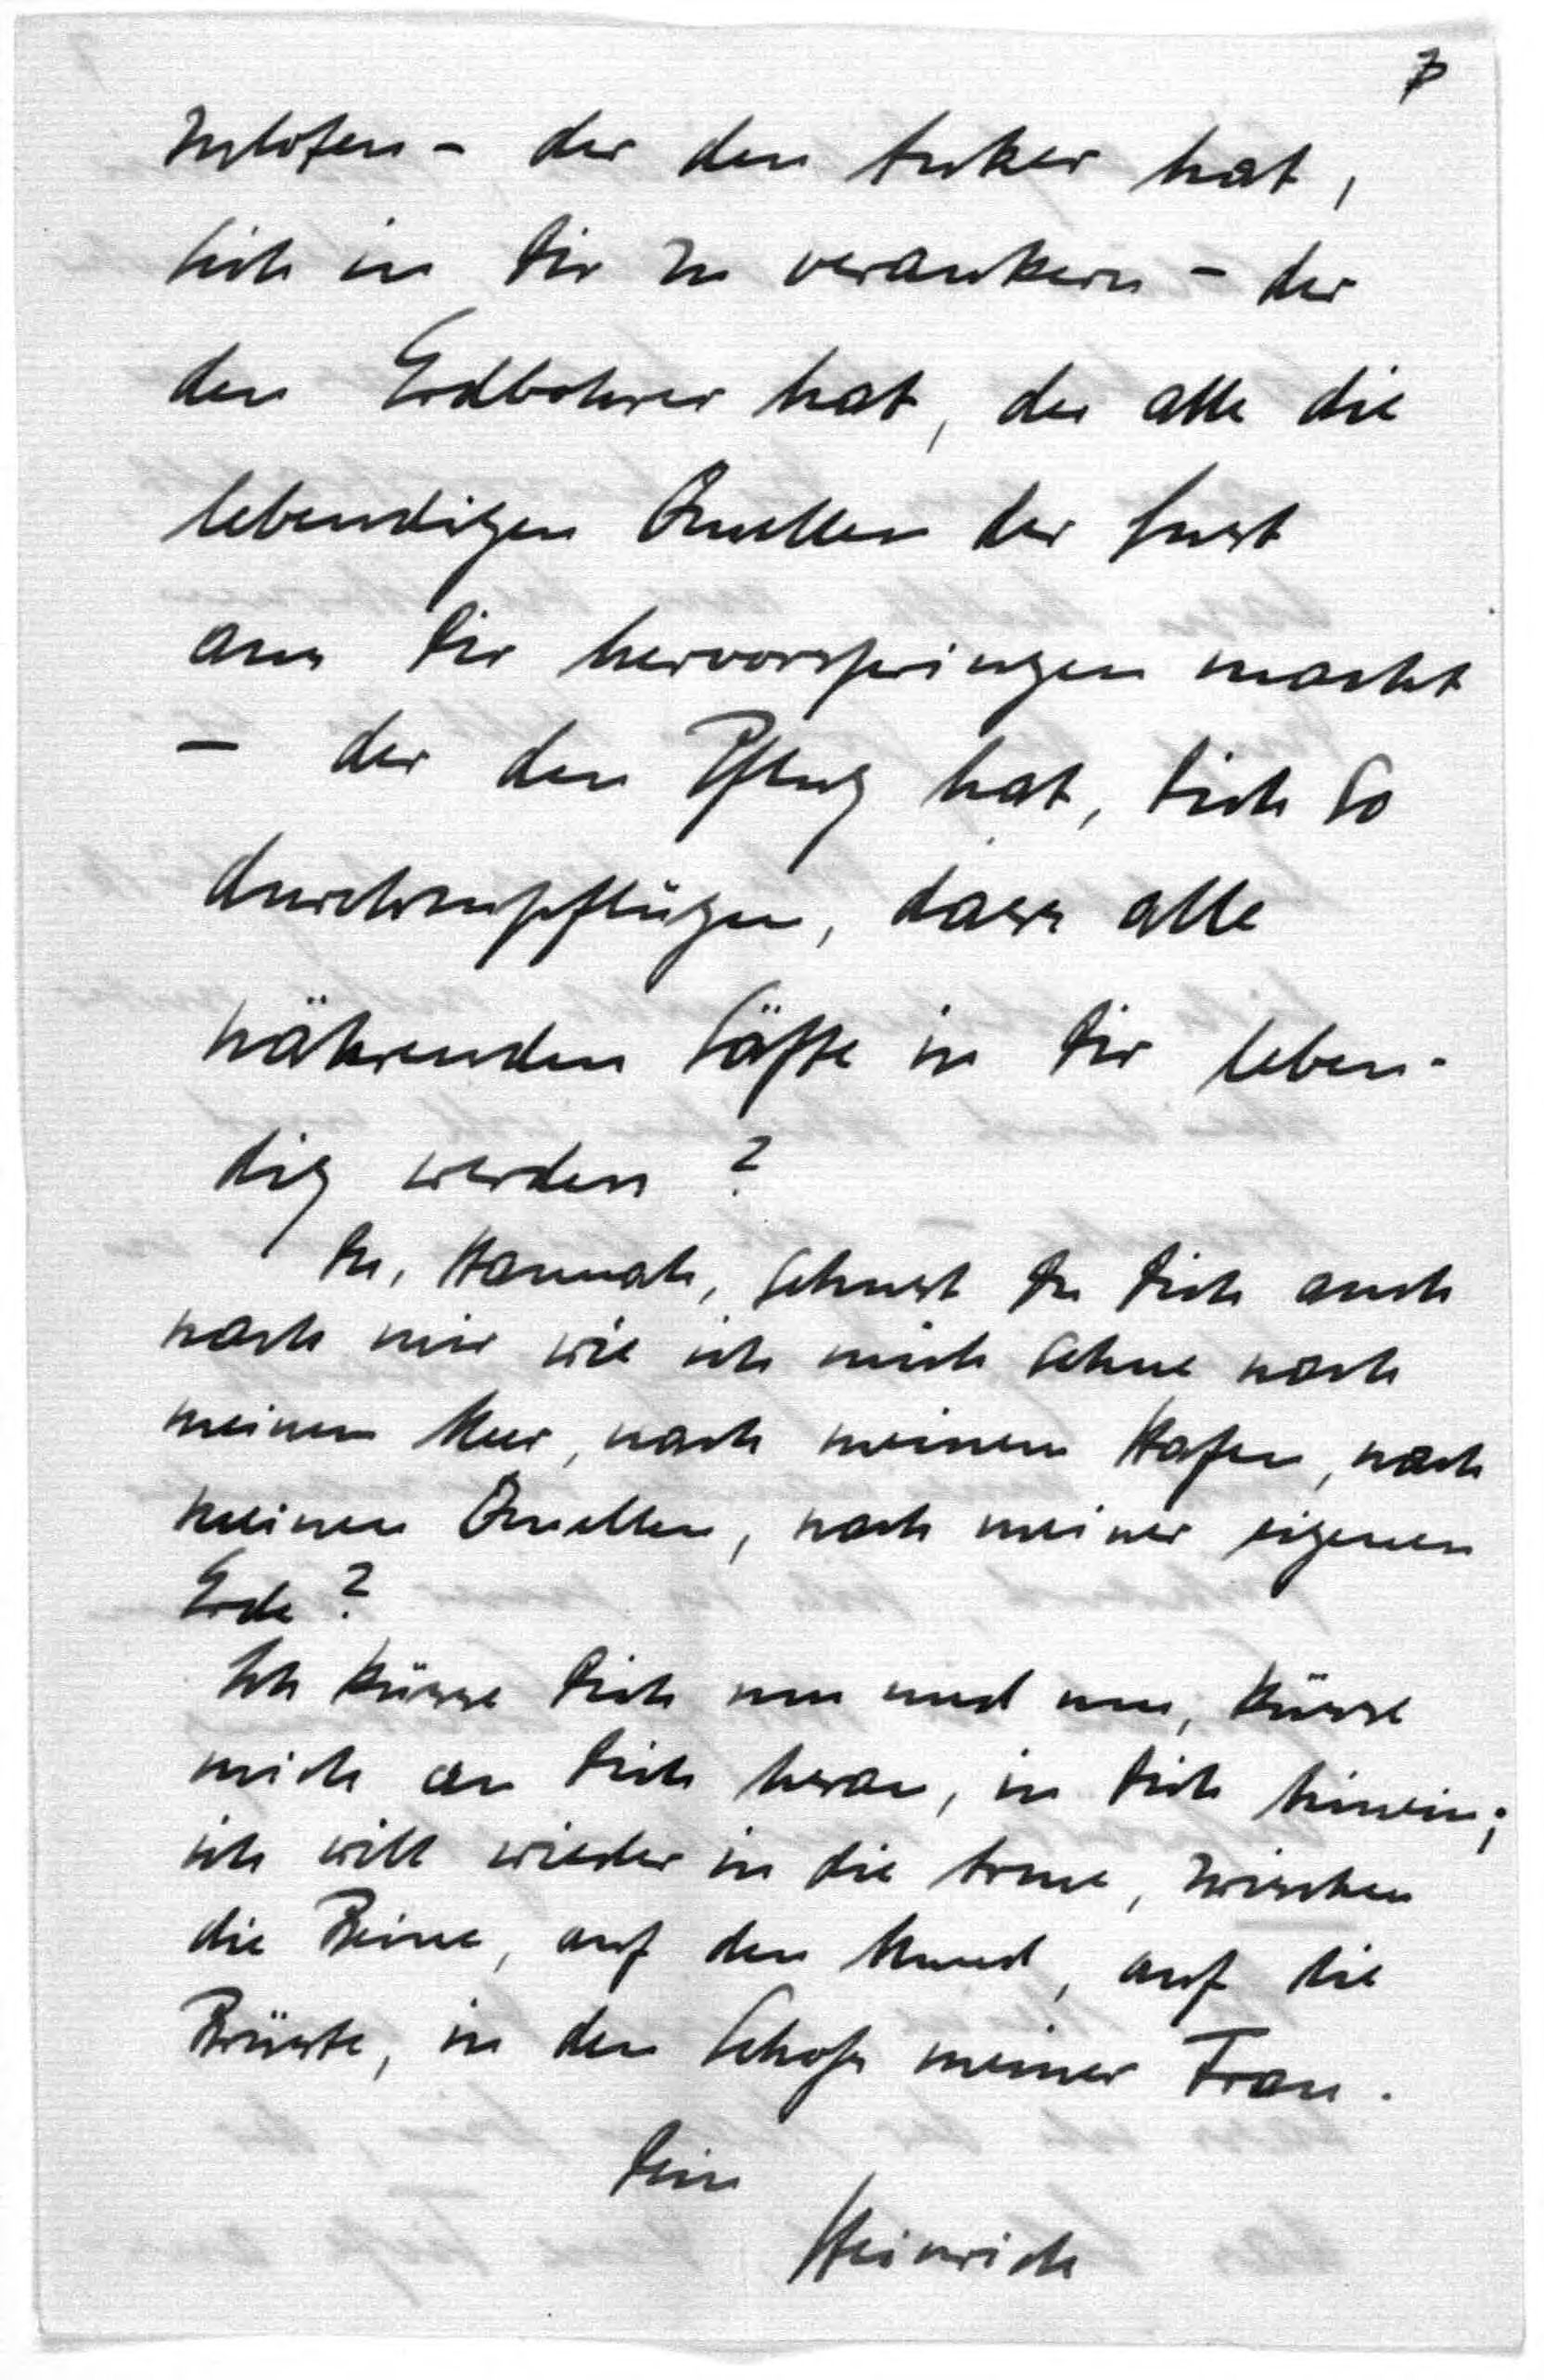 7
zulosen – der den Anker hat,
sich in Dir zu verankern – der
den Erdbohrer hat, der alle die
lebendigen Quellen der Lust
aus Dir hervorspringen macht
– der den Pflug hat, Dich so
durchzupflügen, dass alle
nährenden Säfte in Dir leben-
dig werden?
Du, Hannah, sehnst Du Dich auch
nach mir wie ich mich sehne nach
meinem Meer, nach meinem Hafen, nach
meinen Quellen, nach meiner eigenen
Erde?
Ich küsse Dich um und um, küsse
mich an Dich heran, in Dich hinein;
ich will wieder in die Arme, zwischen
die Beine, auf den Mund, auf die
Brüste, in den Schoss meiner Frau.
Dein
Heinrich